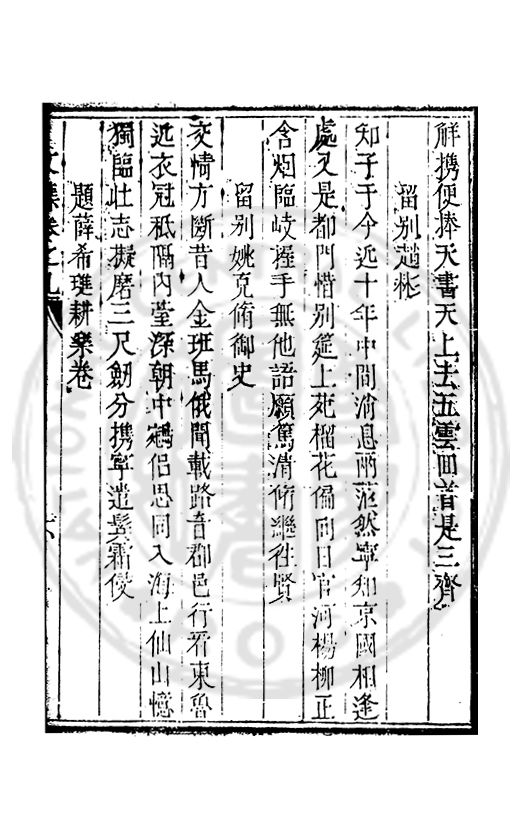 觧携便捧天書天上去五雲回首是三齊
留别趙彬
知子于今近十年中間消息两茫然寧知京國相逢
處又是都門惜别筵上苑榴花偏向日官河楊柳正
含烟臨岐握手無他語願篤清脩繼往賢
留别姚克脩御史
交情方斷昔人金班馬俄聞載路音郡邑行看東魯
近衣冠秖隔内臺深朝中鵷侶思同入海上仙山憶
獨臨壮志擬磨三尺劒分携寧遣鬂霜侵
題薛希璉耕樂卷
文集卷之九